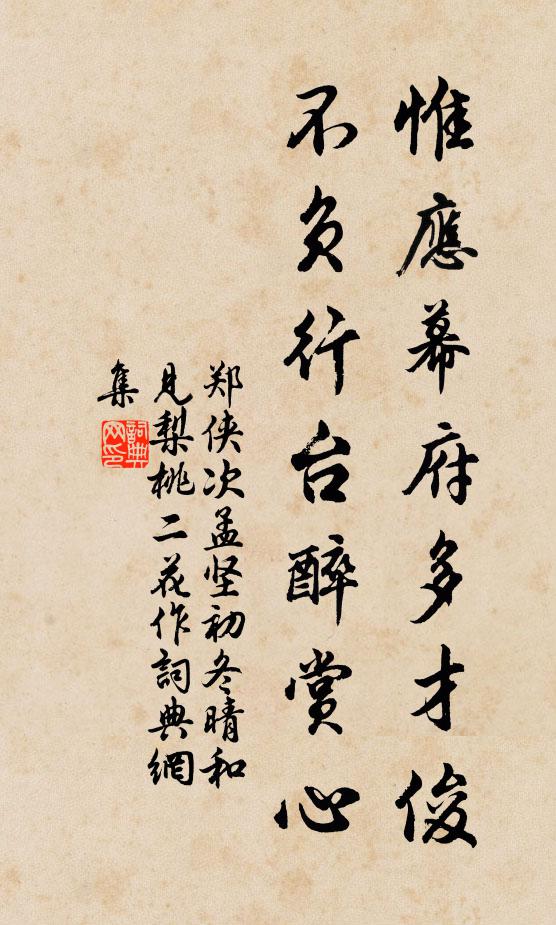 惟應幕府多才俊
不負行台醉賞心
郑侠次孟坚初冬晴和
见梨桃二花作詞典網
集
詞典
网印